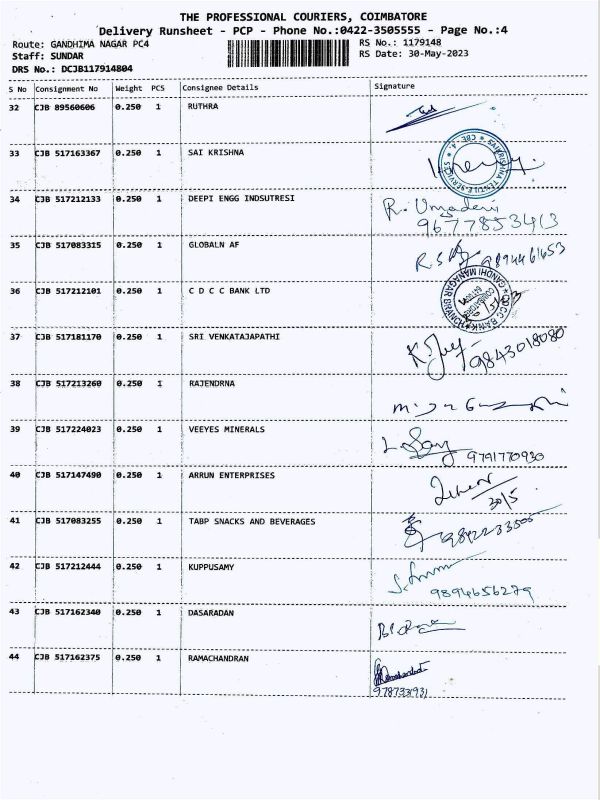 THE PROFESSIONAL COURIERS, COIMBATORE
Delivery Runsheet - PCP - Phone No.:0422-3505555 - Page No.:4
Route: GANDHIMA NAGAR PC4 RS No.: 1179148
Staff: SUNDAR RS Date: 30-May-2023
DRS No.: DCJB117914804
S No Consignment No Weight PCS Consignee Details Signature
32 CJB 89560606 0.250 1 RUTHRA
33 CJB 517163367 0.250 1 SAI KRISHNA
34 CJB 517212133 0.250 1 DEEPI ENGG INDSUTRESI R. Umadevi
9677853413
35 CJB 517083315 0.250 1 GLOBALN AF
36 CJB 517212101 0.250 1 C D C C BANK LTD
37 CJB 517181170 0.250 1 SRI VENKATAJAPATHI 9843018080
38 CJB 517213260 0.250 1 RAJENDRNA
39 CJB 517224023 0.250 1 VEEYES MINERALS 9791770930
40 CJB 517147490 0.250 1 ARRUN ENTERPRISES
30/5
41 CJB 517083255 0.250 1 TABP SNACKS AND BEVERAGES
42 CJB 517212444 0.250 1 KUPPUSAMY
9894656279
43 CJB 517162340 0.250 1 DASARADAN
44 CJB 517162375 0.250 1 RAMACHANDRAN